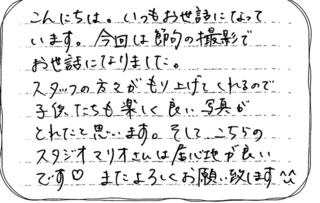 こんにちは。いつもお世話になって
います。今回は節句の撮影で
お世話になりました。
スタッフの方々がもり上げてくれるので
子供たちも楽しく良い写真が
とれたと思います。そして、こちらの
スタジオマリオさんは居心地が良い
です♡ またよろしくお願い致します^^